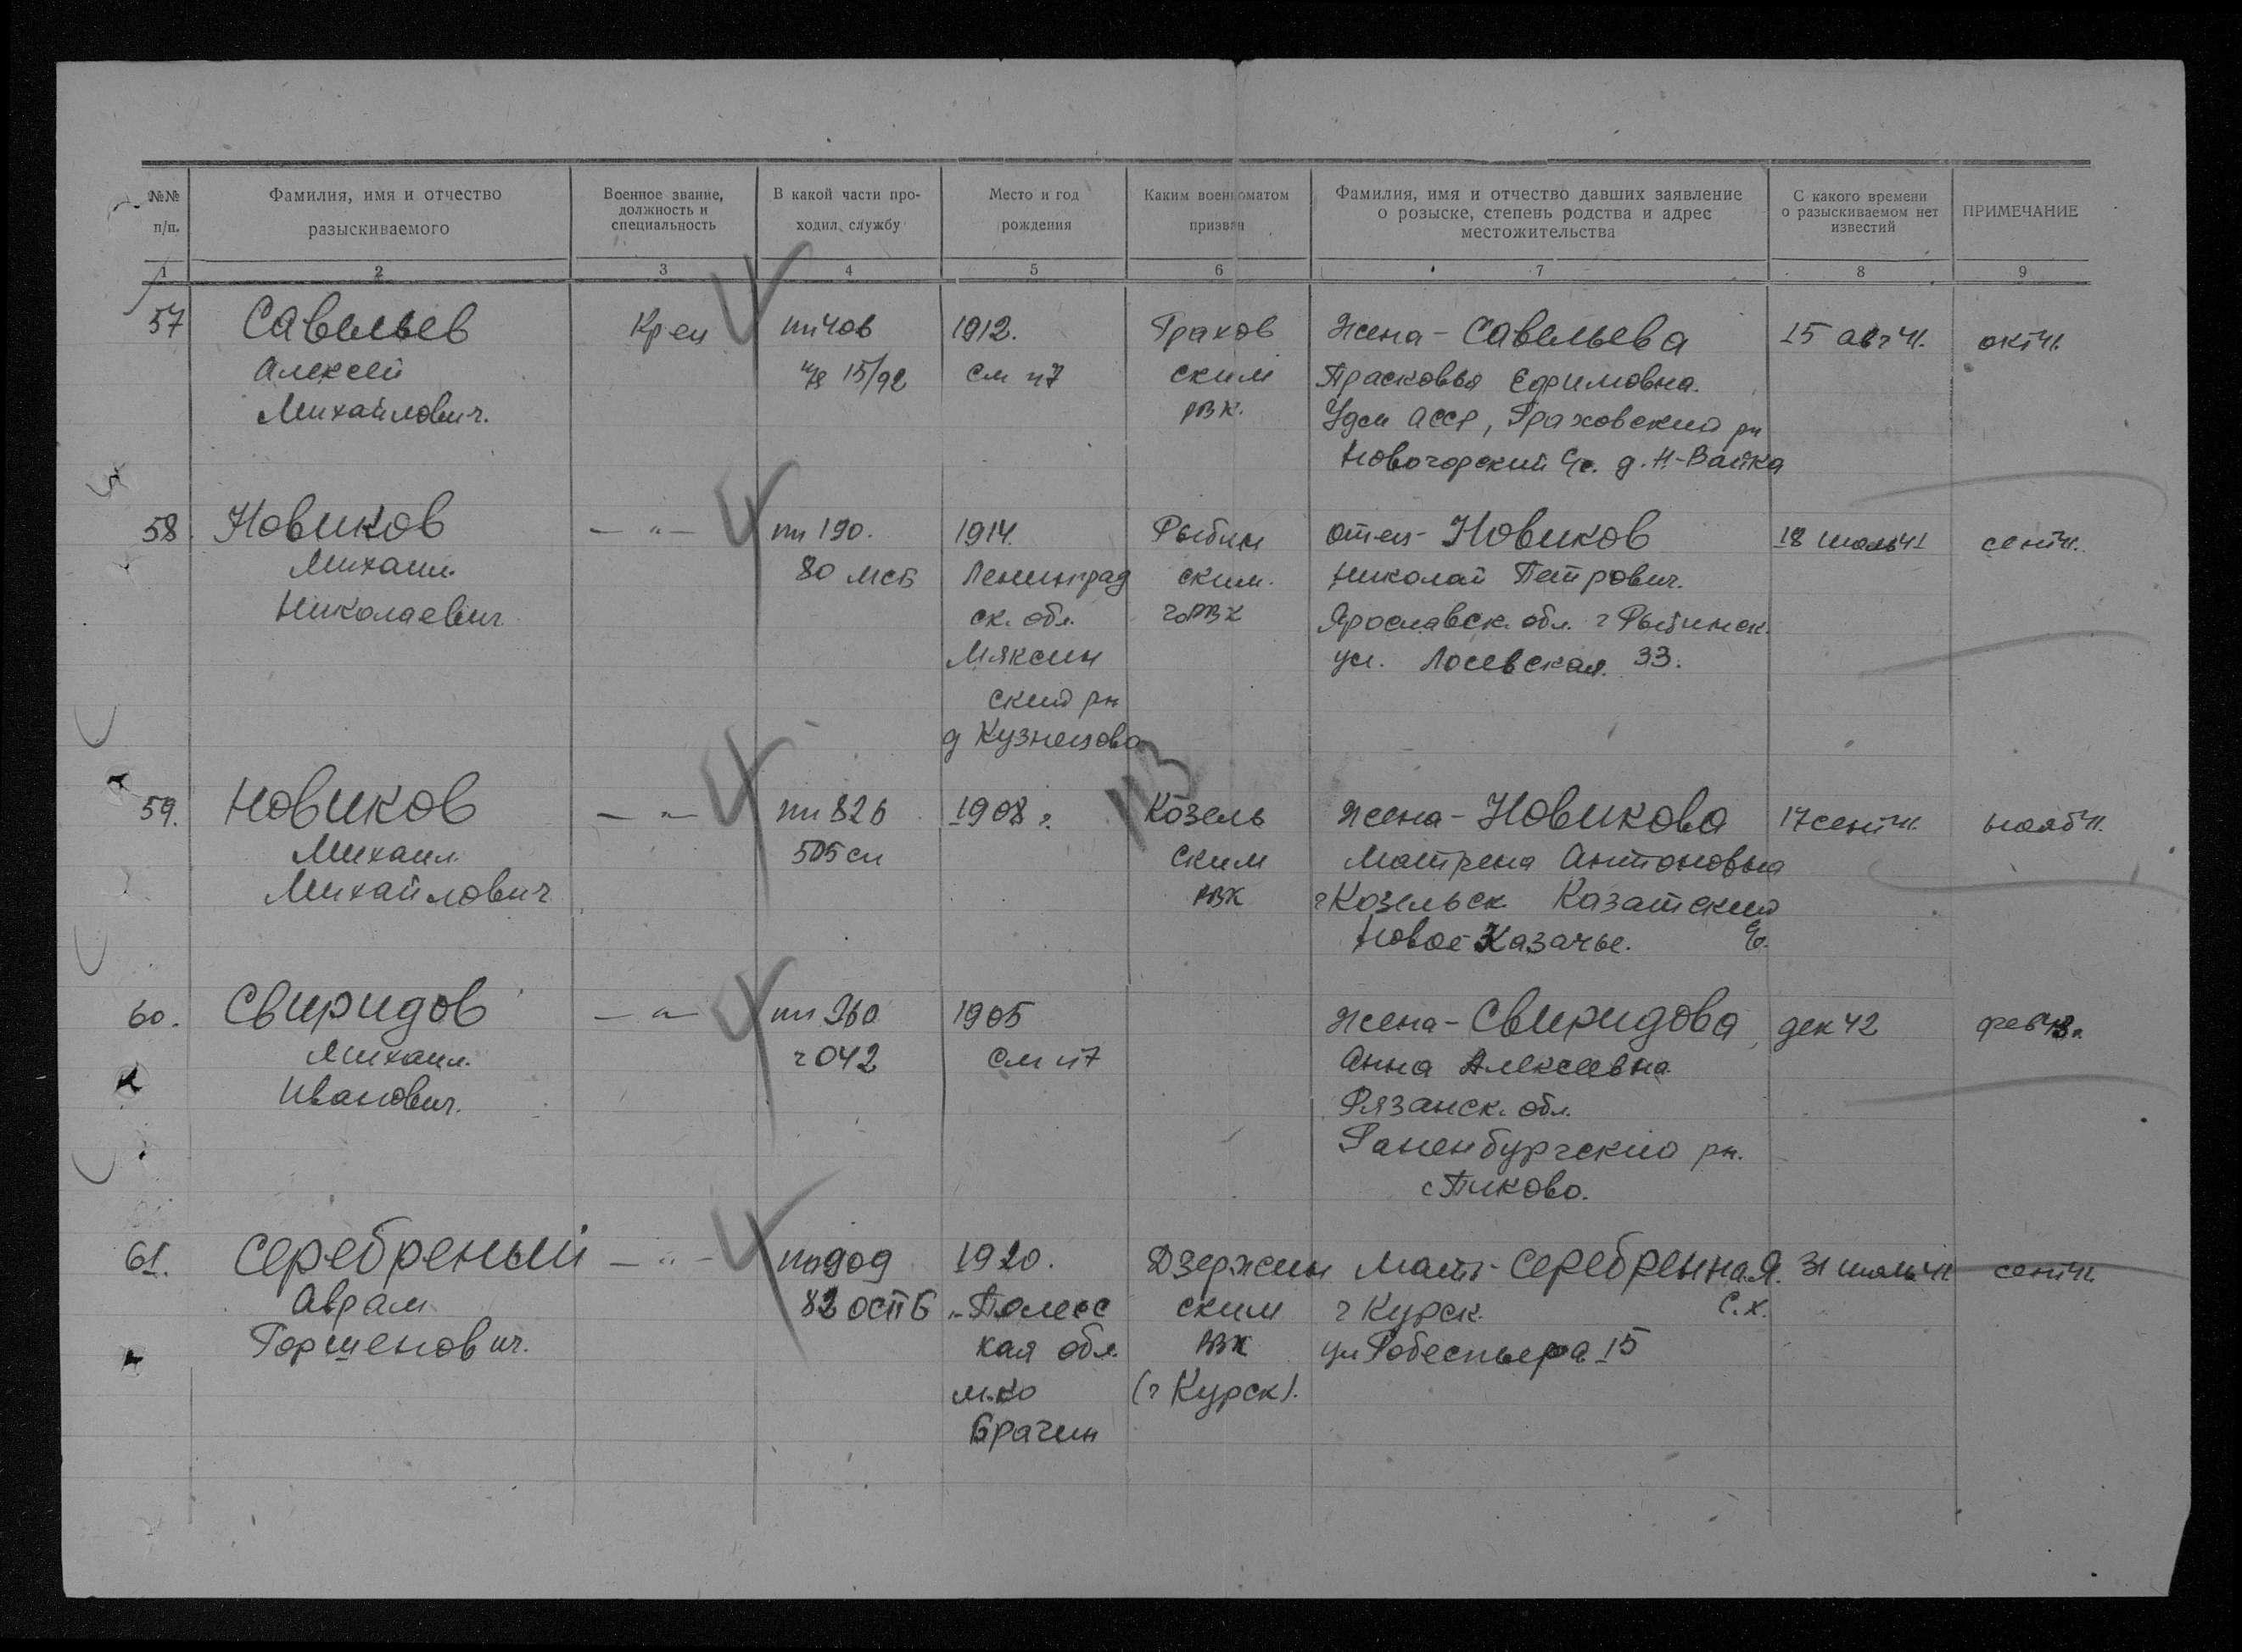 №№ п/п.
Фамилия, имя и отчество разыскиваемого
Военное звание, должность и специальность
В какой части проходил службу
Место и год рождения
Каким военкоматом призван
Фамилия, имя и отчество давших заявление о розыске, степень родства и адрес местожительства
С какого времени о разыскиваемом нет известий
ПРИМЕЧАНИЕ
1 2 3 4 5 6 7 8 9
57 Савельев Кр-ец пп 406 1912. Грахов Жена - Савельева 15 авг 41. окт 41.
Алексей ч 15/92 см п7 ским Прасковья Ефимовна.
Михайлович. РВК. Удм АССР, Граховский рн
Новогорский с/с. д. Н-Вайка
58. Новиков — " — пп 190. 1914. Рыбин отец - Новиков 18 июль 41 сент 41.
Михаил 80 мсб Ленинград ским. Николай Петрович.
Николаевич ск. обл. гоРВК Ярославск. обл. г Рыбинск.
Мяксин ул. Лосевская 33.
ский рн
д Кузнецово
113
59. Новиков — " — пп 826 1908 г. Козель Жена - Новикова 17 сент 41. нояб 41.
Михаил 505 сп ским Матрена Антоновна
Михайлович РВК г Козельск Казатский
Новое Казачье. с/с.
60. Свиридов — " — пп 960 1905 Жена - Свиридова дек 42 фев 43 г.
Михаил. ч 042 см п7 Анна Алексеевна
Иванович. Рязанск. обл.
Раненбургский рн.
с Пиково.
61. Серебреный — " — пп 909 1920. Дзержин Мать - Серебренная. 31 июль 41 сент 41.
Аврам 82 осп б Полесс ским г Курск. С.Х.
Горшенович. кая обл. РВК ул Робеспьера 15
м-ко (г Курск).
Брагин